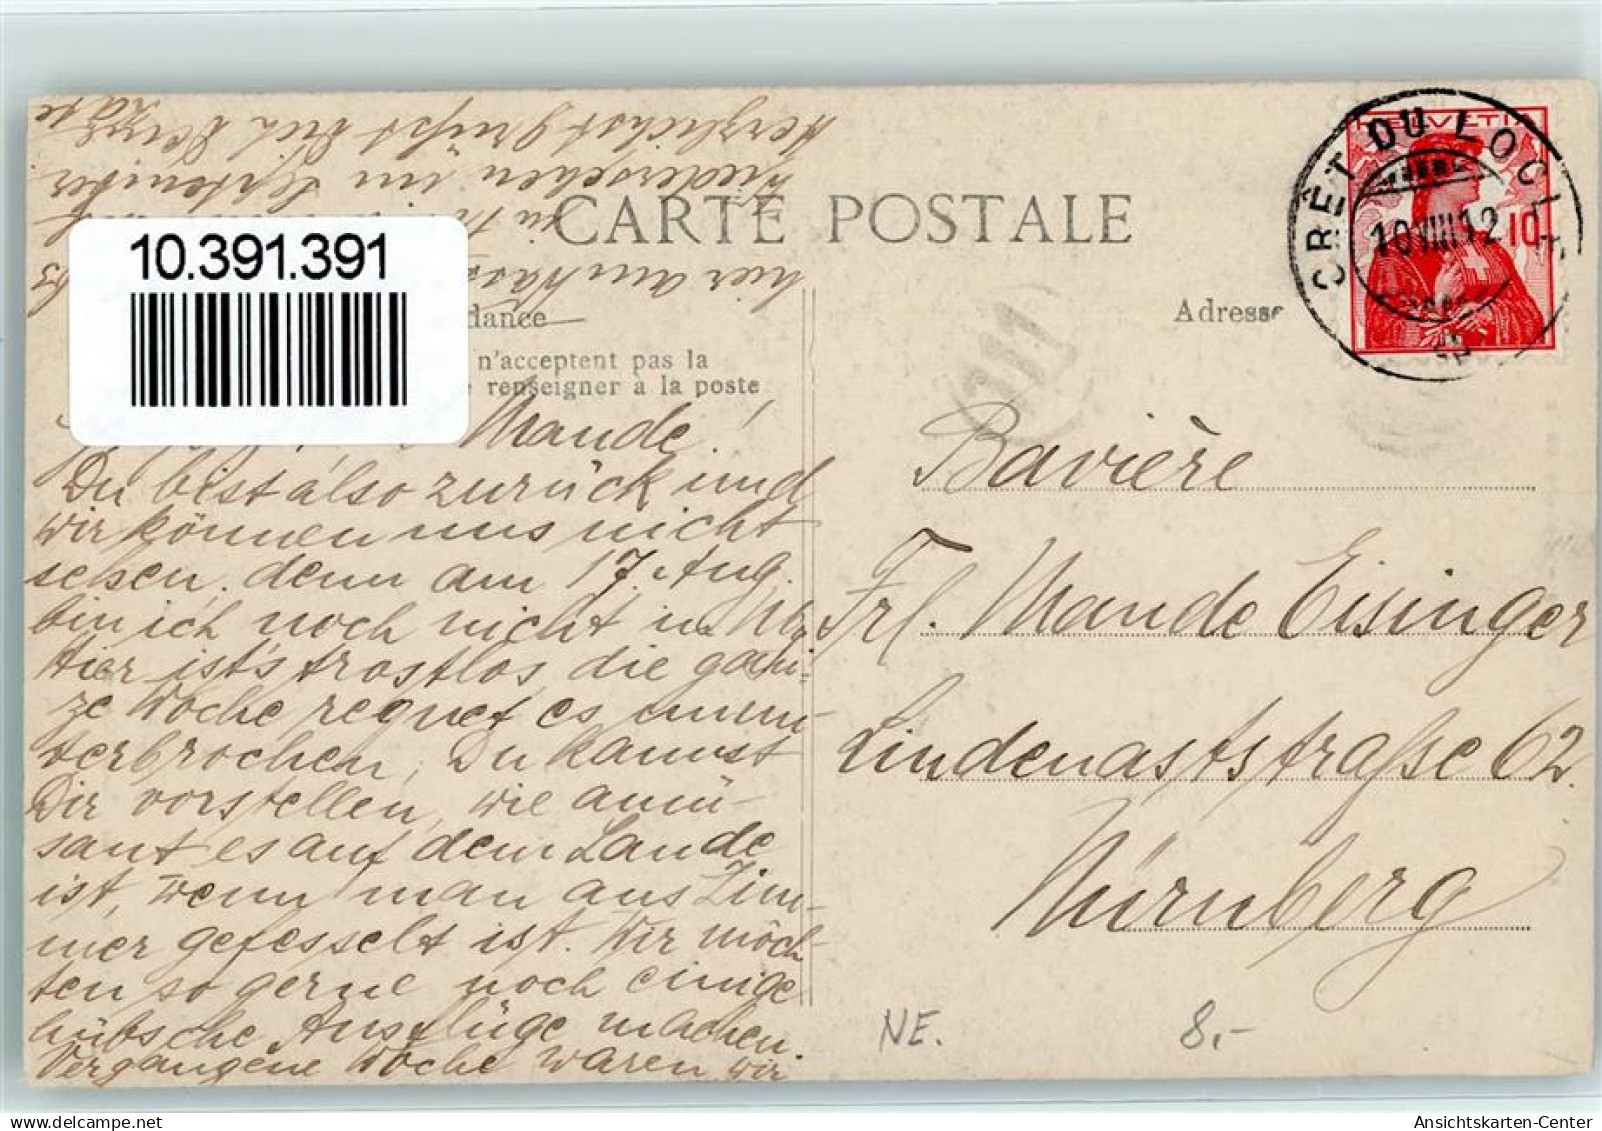 10.391.391
CARTE POSTALE
dance
n'acceptent pas la
renseigner à la poste
Adresse
CRÊT DU LOCLE
10 VIII 12
HELVETIA
10
Maude!
Du bist also zurück und
wir können uns nicht
sehen, denn am 17. Aug.
bin ich noch nicht in Nbg.
Hier ist's trostlos die gan-
ze Woche regnet es unun-
terbrochen, Du kannst
Dir vorstellen, wie amü-
sant es auf dem Lande
ist, wenn man ans Zim-
mer gefesselt ist. Wir möch-
ten so gerne noch einige
hübsche Ausflüge machen.
Vergangene Woche waren wir
hier am
Wiedersehen im September.
Herzlichst grüßt Dich Deine
Bavière
Frl. Maude Eisinger
Lindenaststraße 62.
Nürnberg
NE.
8,-
Ansichtskarten-Center